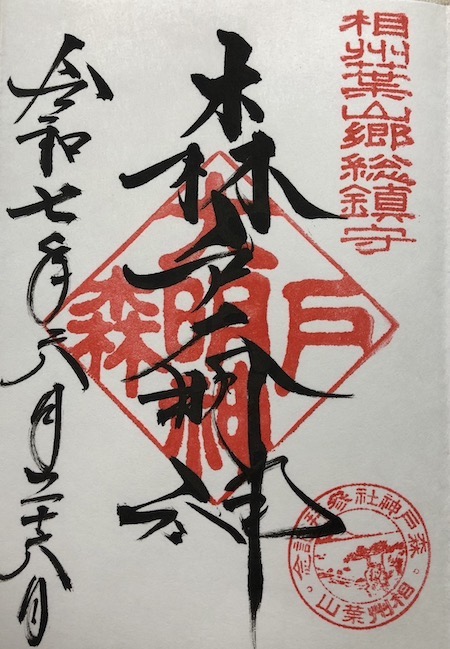 相州葉山郷総鎮守
森戸大明神
森戸大明神
令和七年六月二十六日
森戸神社參拝記念
相州葉山